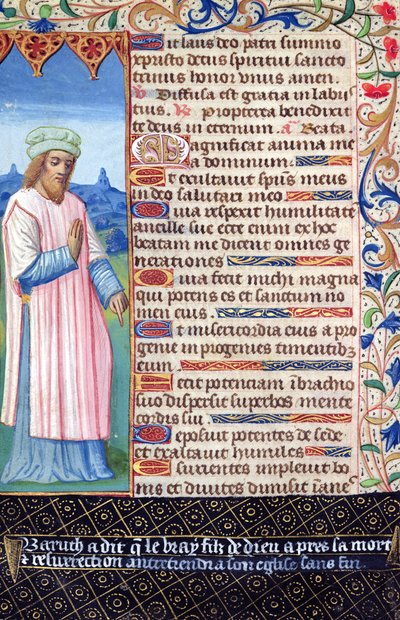 Sit laus deo patri summo
cpristo decus spiritui sancto
trinus honor vnus amen.
℣ Diffusa est gratia in labijs
tuis. ℟. propterea benedixit
te deus in eternum. a. Beata.
Magnificat anima me
a dominum.
Et exultauit spūs meus
in deo salutari meo.
Quia respexit humilitatē
ancille sue ecce enim ex hoc
beatam me dicent omnes ge
nerationes
Quia fecit michi magna
qui potens es et sanctum no
men eius.
Et misericordia eius a pro
genie in progenies timentibz
eum.
Fecit potenciam ī brachio
suo dispersit superbos mente
cordis sui.
Deposuit potentes de sede
et exaltauit humiles
Esurientes impleuit bo
nis et diuites dimisit ināne
Baruch a dit q̄ le vray filz de dieu apres sa mort
& resurection antretiendra son eglise sans fin